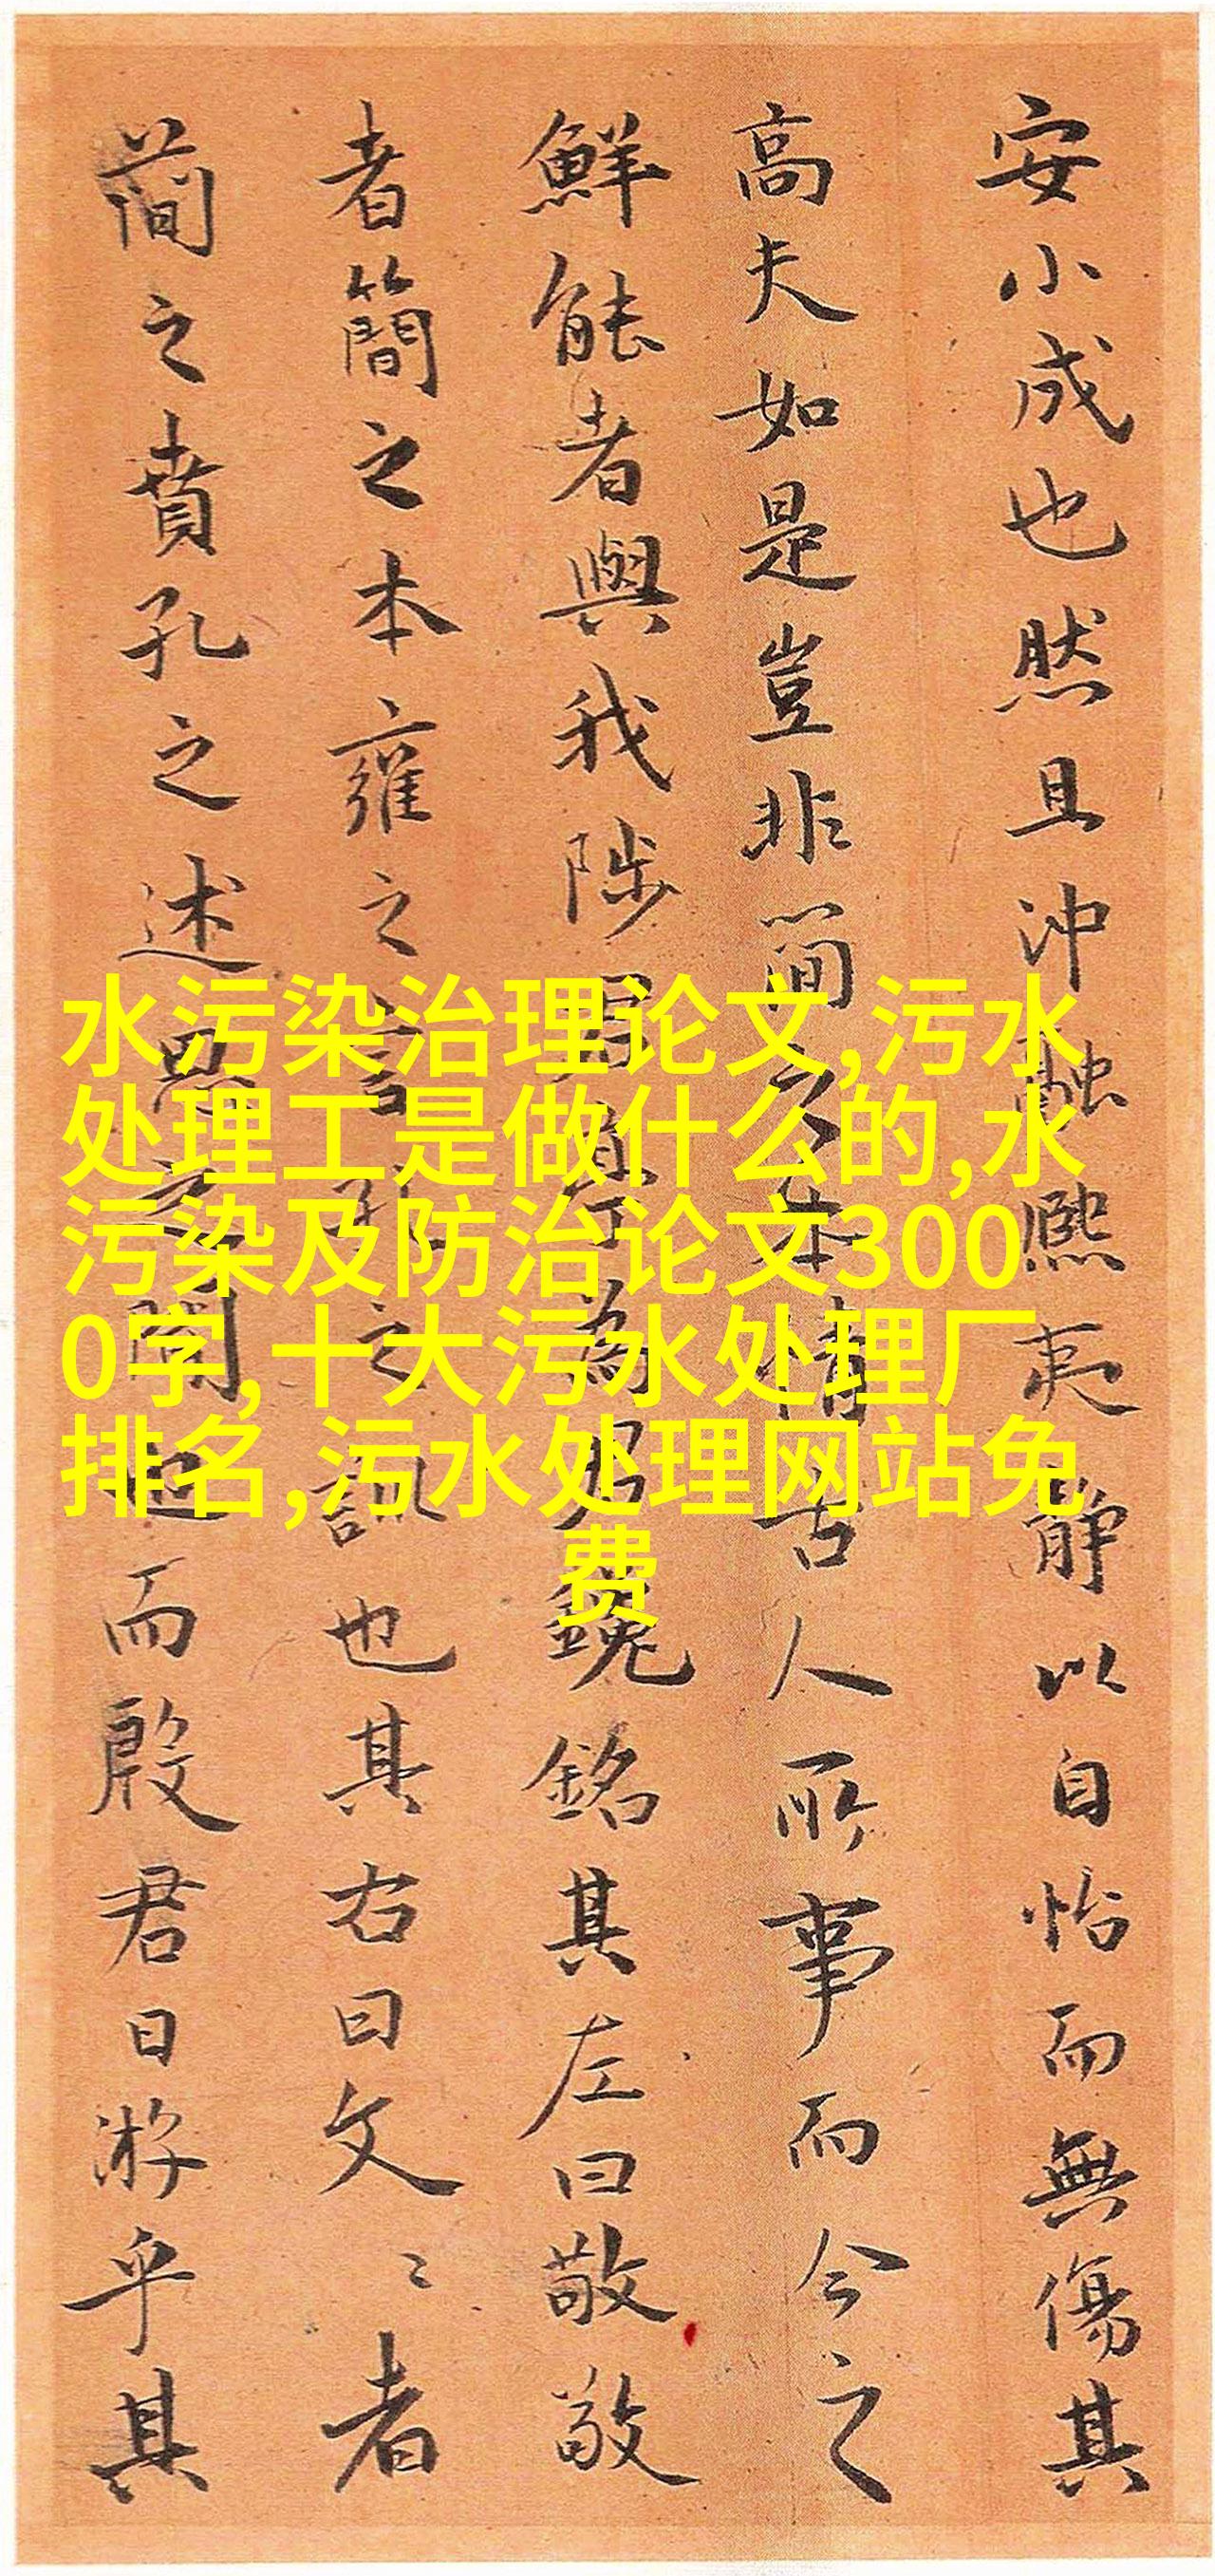 安小成也然且沖融熙夷靜以自怡而無傷其
高夫如是豈非簡之本情古人所事而今之
鮮能者與我陟君至為君鑱銘其左曰敬敬
者簡之本雍之言孔之訓也其右曰文〻者
蕳之賁孔之述思之闇也而殷君日游乎其
水污染治理论文,污水
处理工是做什么的,水
污染及防治论文300
0字,十大污水处理厂
排名,污水处理网站免
费